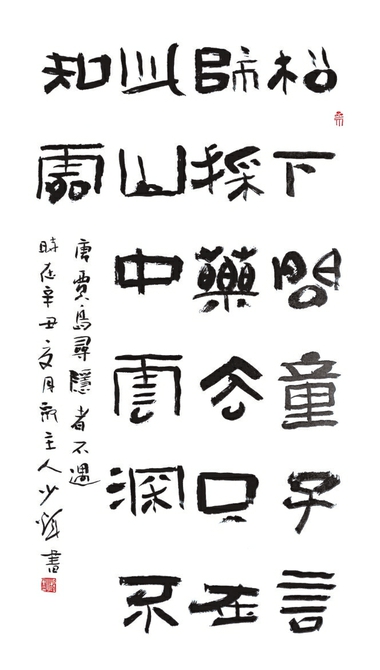 松下問童子言
師採藥去只在
此山中雲深不
知處
唐賈島尋隱者不遇
時在辛丑月主人少書